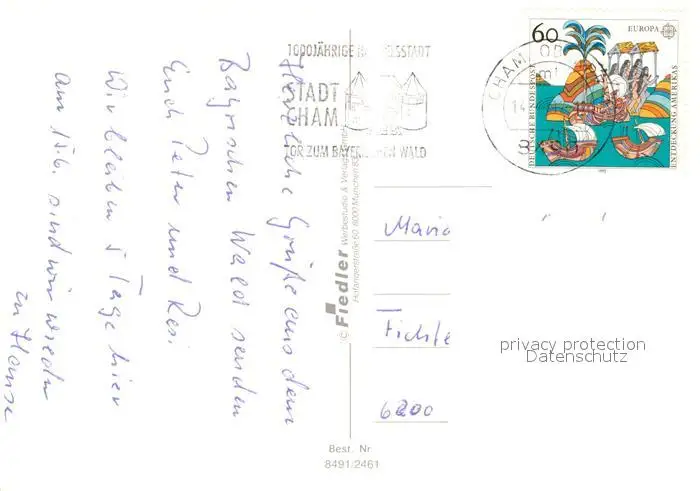 Herzliche Grüße aus dem
Bayrischen Wald senden
Euch Peter und Resi
Wir bleiben 5 Tage hier
am 15.6. sind wir wieder
zu Hause
1000JÄHRIGE
STADT
CHAM
TOR ZUM BAYER WALD
CHAM
60
EUROPA
DEUTSCHE BUNDESPOST
ENTDECKUNG AMERIKAS
1992
© Fiedler Werbestudio & Verlag
Hofangerstraße 60 8000 München 83
Maria
Fichte
6200
privacy protection
Datenschutz
Best. Nr.
8491/2461